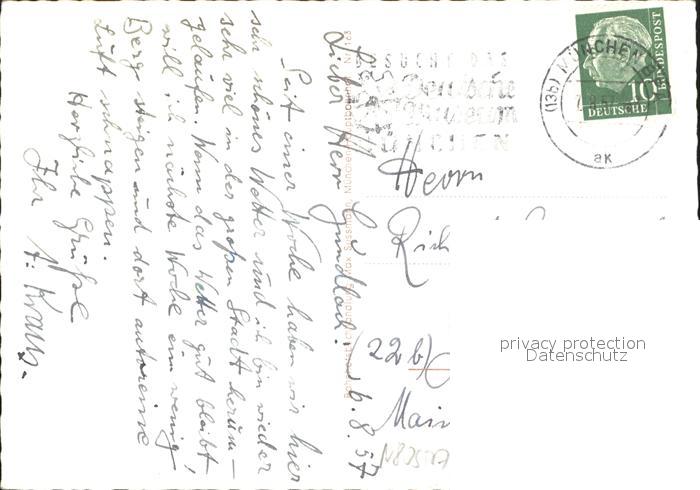 6.8.57
Lieber Herr Gundlach!
Seit einer Woche haben wir hier
sehr schönes Wetter und ich bin wieder
sehr viel in der großen Stadt herum-
gelaufen. Wenn das Wetter gut bleibt,
will ich nächste Woche ein wenig
Berg steigen und dort
Luft schnappen.
Herzliche Grüße
Ihr A. Kraus.
BESUCHT DAS
Deutsche
Museum
MÜNCHEN
(13b) MÜNCHEN
ak
10
DEUTSCHE
BUNDESPOST
Herrn
Rich
(22b)
Main
privacy protection
Datenschutz